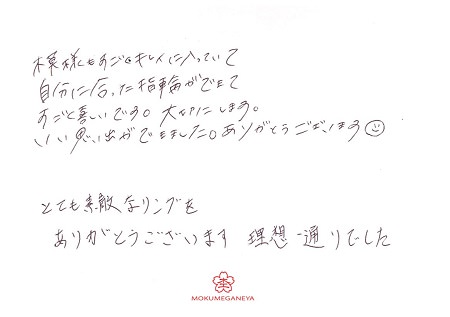 模様もすごくキレイに入っていて
自分に合った指輪ができて
すごく喜しいです。大切にします。
いい思い出ができました。ありがとうございます
とても素敵なリングを
ありがとうございます 理想通りでした
MOKUMEGANEYA